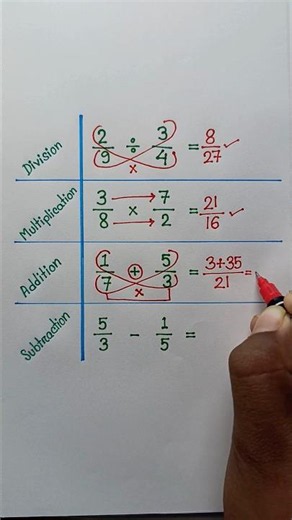 Division 2/9 ÷ 3/4 = 8/27 ✓
x
Multiplication 3/8 x 7/2 = 21/16 ✓
Addition 1/7 + 5/3 = 3+35/21 =
x
Subtraction 5/3 - 1/5 =